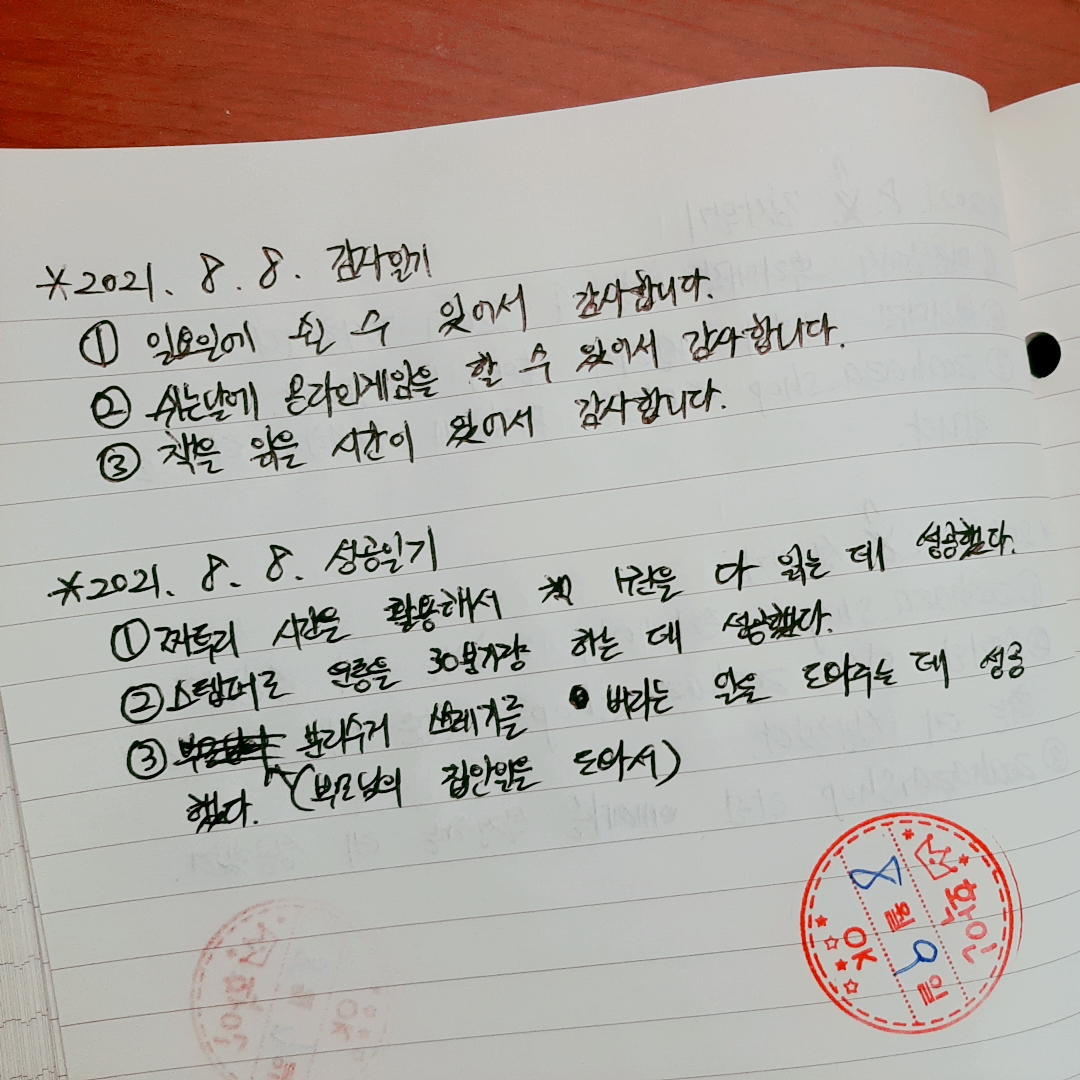 *2021. 8. 8. 감사일기
① 일요일에 쉴 수 있어서 감사합니다.
② 쉬는날에 온라인게임을 할 수 있어서 감사합니다.
③ 책을 읽을 시간이 있어서 감사합니다.
*2021. 8. 8. 성공일기
① 짜투리 시간을 활용해서 책 1권을 다 읽는 데 성공했다.
② 스텝퍼로 운동을 30분가량 하는 데 성공했다.
③ 분리수거 쓰레기를 버리는 일을 도와주는 데 성공
했다. (부모님의 집안일을 도와서)
확인
8월 9일
OK